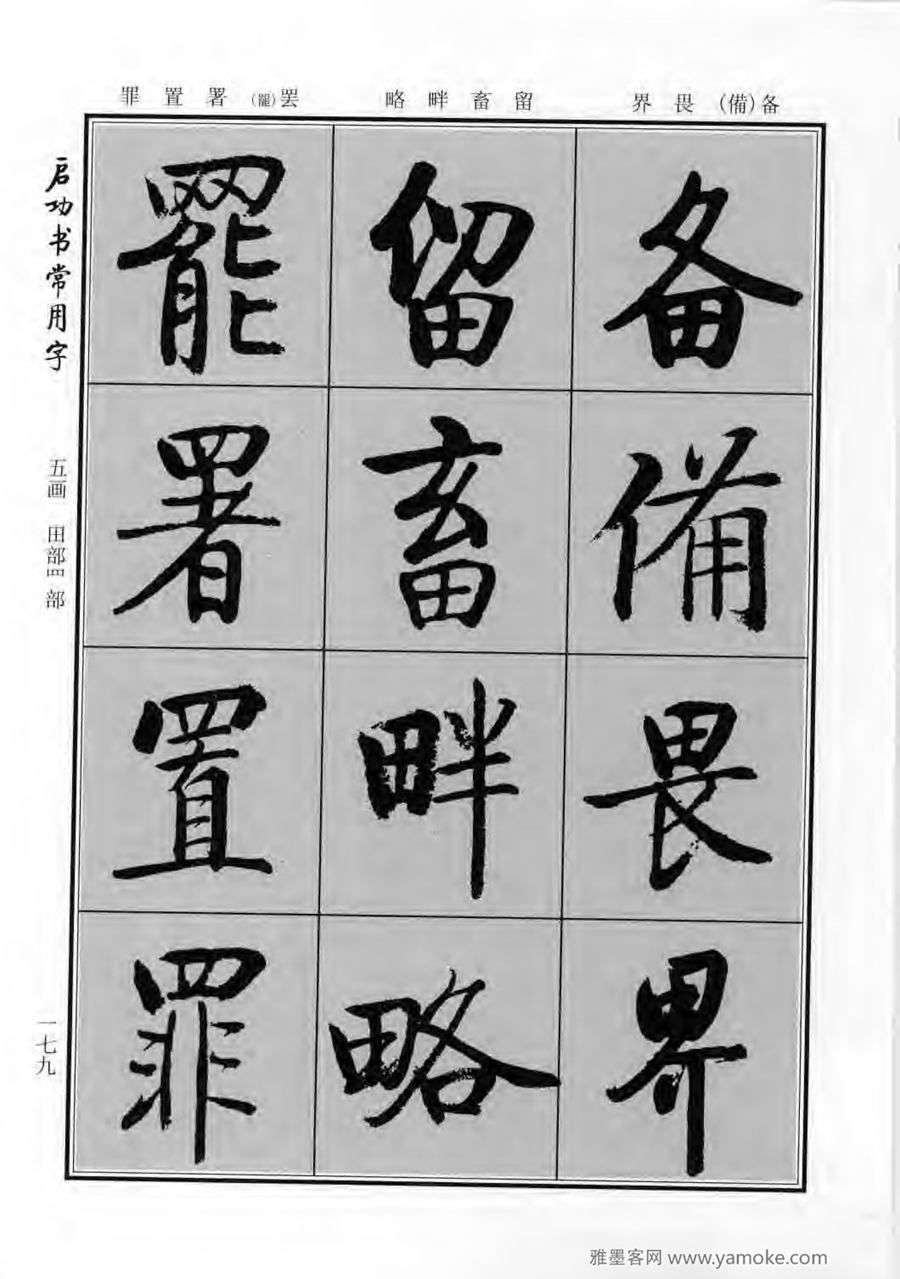 备(備)畏界
留畜畔略
罢(罷)署置罪
备
備
畏
界
留
畜
畔
略
罷
署
置
罪
启功书常用字
五画 田部罒部
一七九
雅墨客网 www.yamoke.com